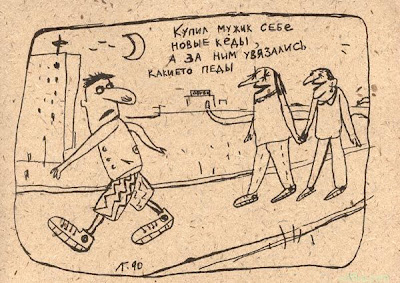 Купил мужик себе
новые кеды,
а за ним увязались
какието педы
ЛГ. 90